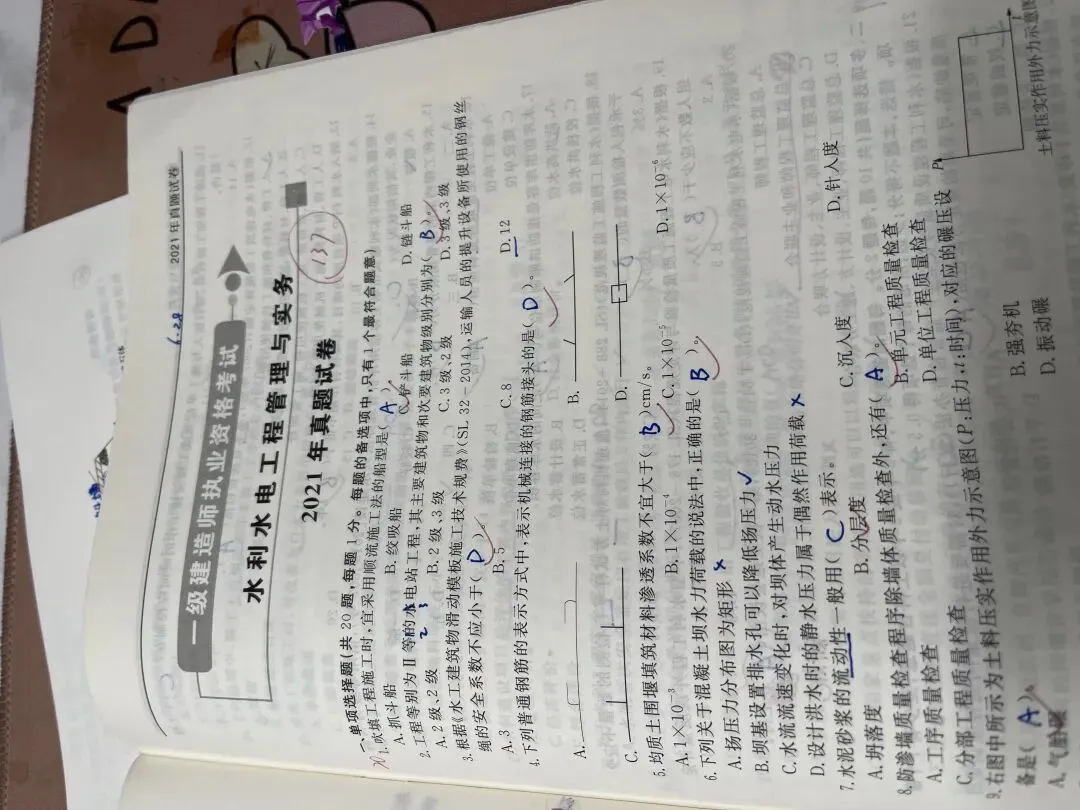 2021年真题试卷
6.28
一级建造师执业资格考试
水利水电工程管理与实务
2021年真题试卷
137
一、单项选择题(共20题,每题1分。每题的备选项中,只有1个最符合题意)
1.吹填工程施工时,宜采用顺流施工法的船型是( A
A.抓斗船 B.绞吸船 C.铲斗船 D.链斗船
2.工程等别为Ⅱ等的水电站工程,其主要建筑物和次要建筑物级别分别为( B )。
2 3
A.2级、2级 B.2级、3级 C.3级、2级 D.3级、3级
3.根据《水工建筑物滑动模板施工技术规费》(SL 32-2014),运输人员的提升设备所使用的钢丝
绳的安全系数不应小于( D )
A.3 B.5 C.8 D.12
4.下列普通钢筋的表示方式中,表示机械连接的钢筋接头的是( D )。
A. B.
C. D.
5.均质土围堰填筑材料渗透系数不宜大于( B )cm/s。
A.1×10⁻³ B.1×10⁻⁴ C.1×10⁻⁵ D.1×10⁻⁶
6.下列关于混凝土坝水力荷载的说法中,正确的是( B )。
A.扬压力分布图为矩形 ×
B.坝基设置排水孔可以降低扬压力 ✓
C.水流流速变化时,对坝体产生动水压力
D.设计洪水时的静水压力属于偶然作用荷载 ×
7.水泥砂浆的流动性一般用( C )表示。
A.坍落度 B.分层度 C.沉入度 D.针入度
8.防渗墙质量检查程序除墙体质量检查外,还有( A )。
A.工序质量检查 B.单元工程质量检查
C.分部工程质量检查 D.单位工程质量检查
9.右图中所示为土料压实作用外力示意图(P:压力;t:时间),对应的碾压设
备是( A
A.气胎碾 B.强夯机
D.振动碾
P
土料压实作用外力示意图